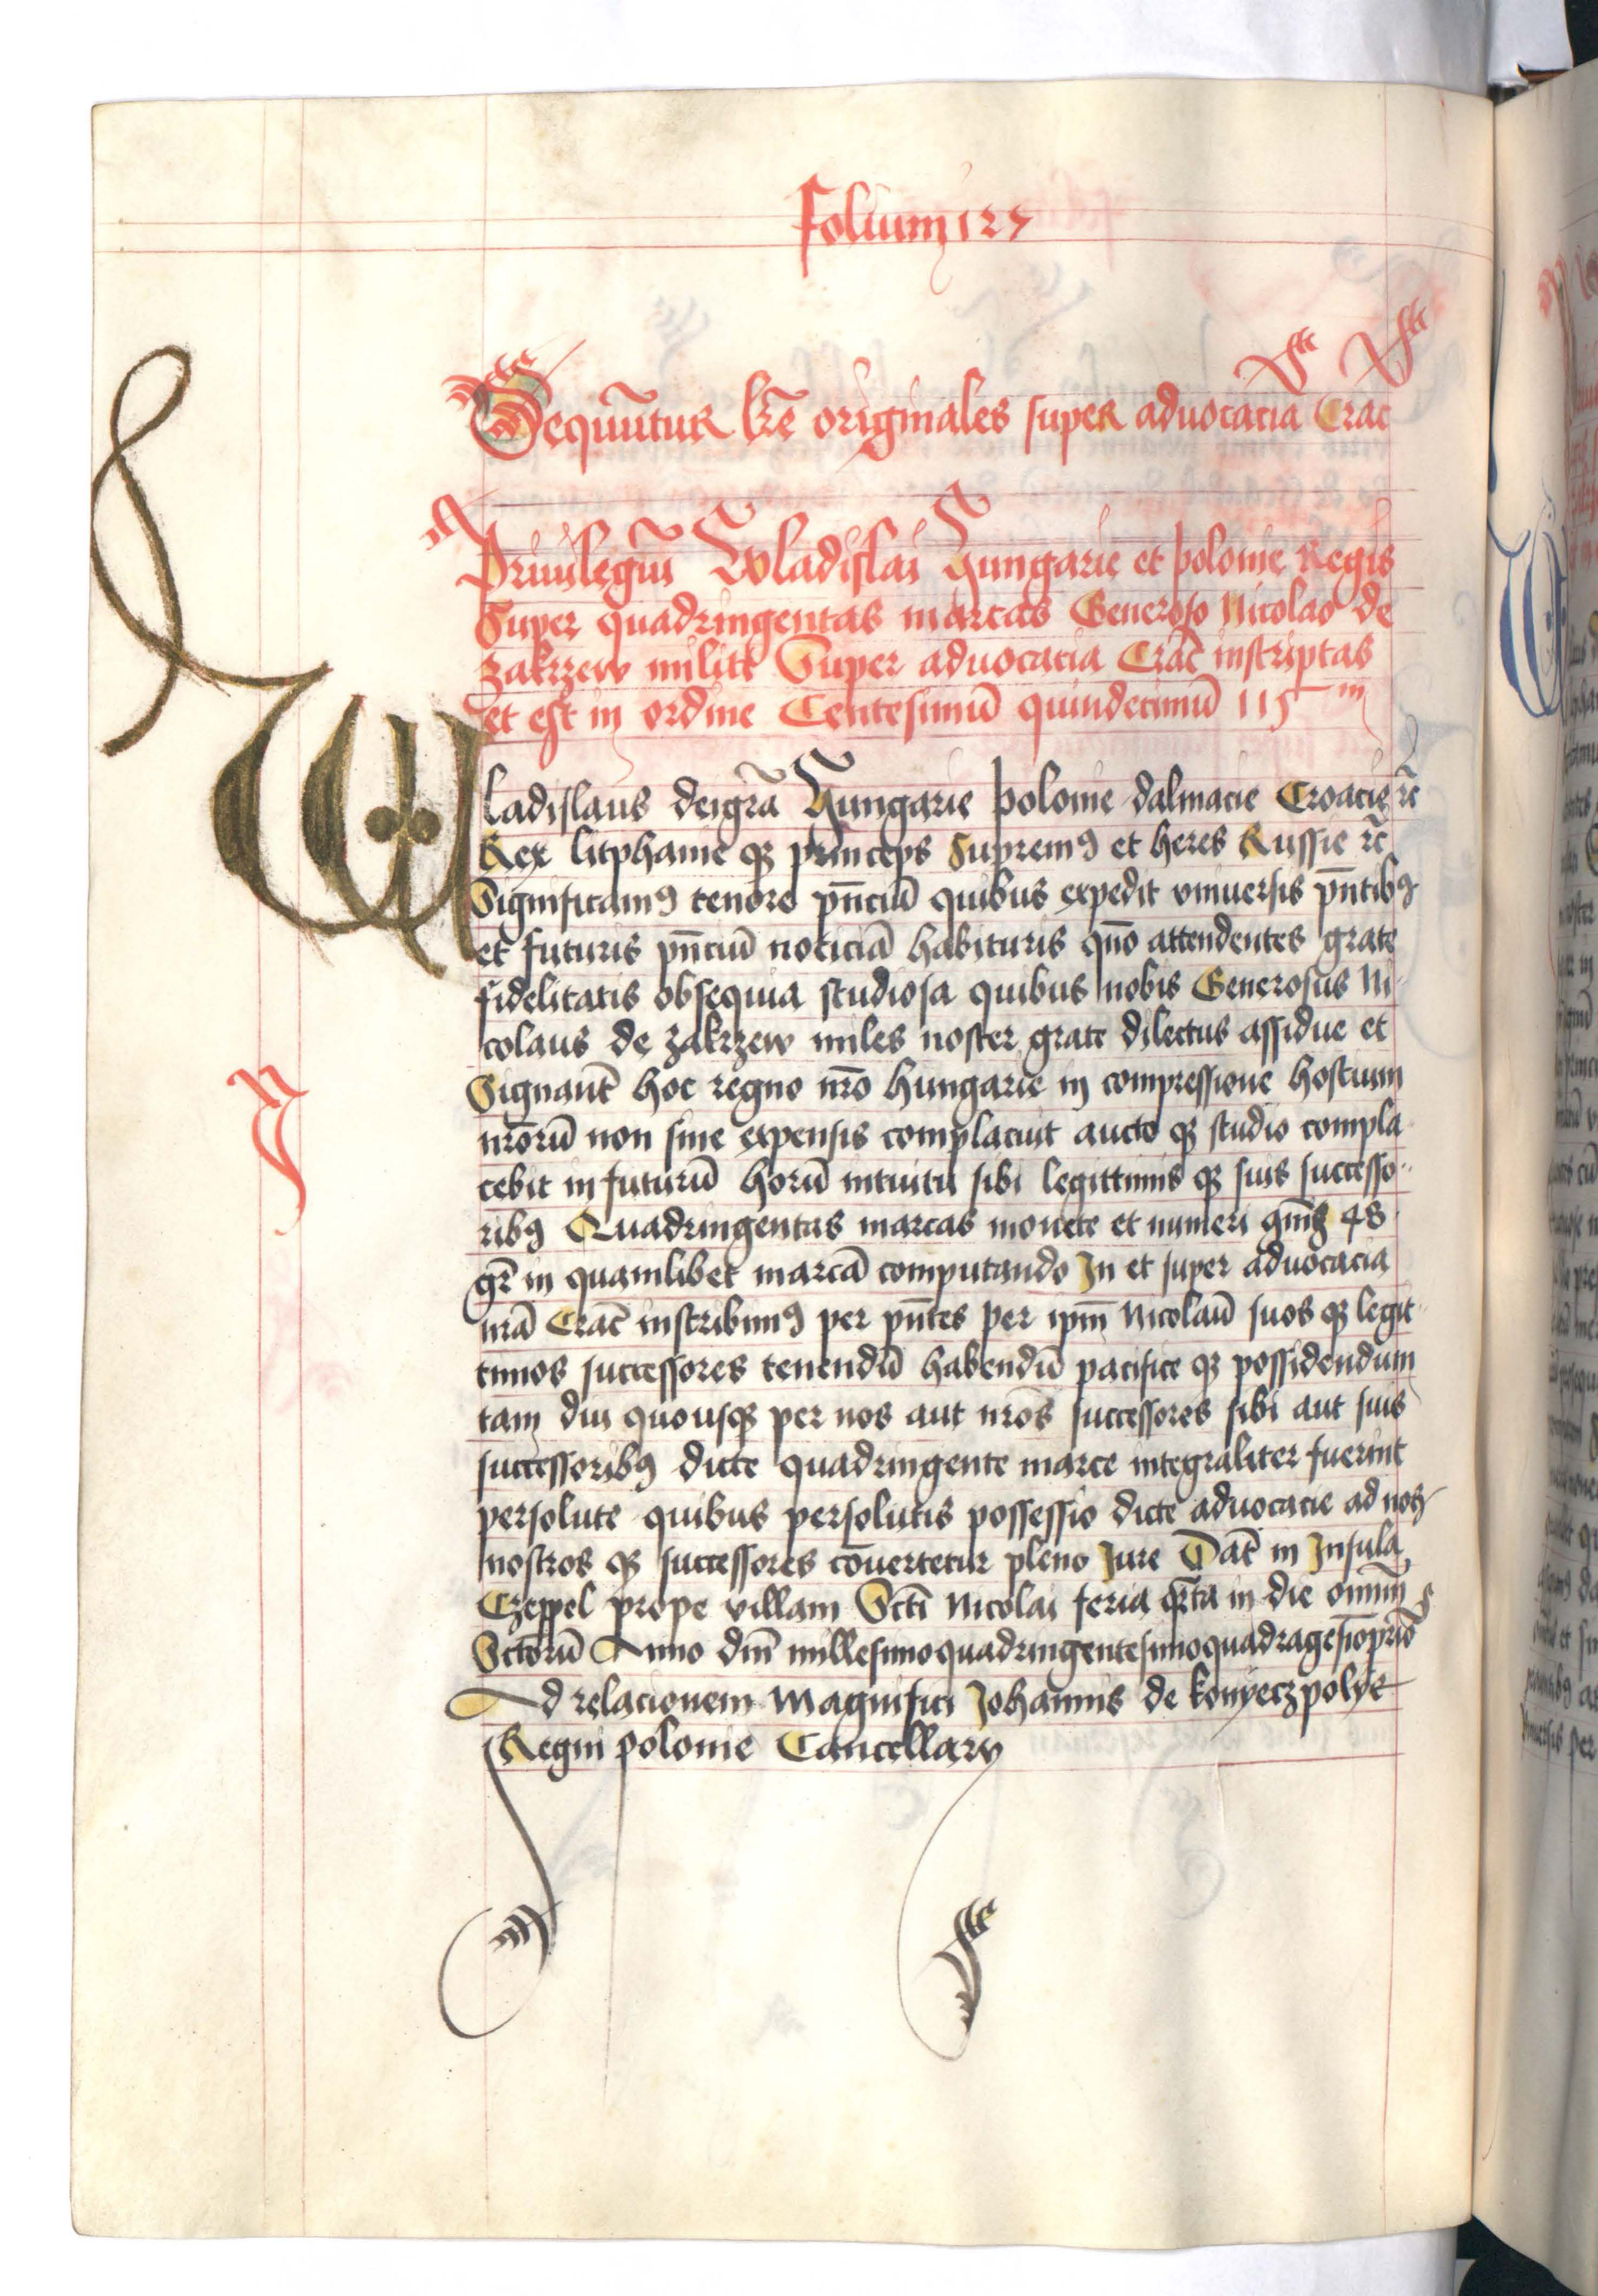 Folium 127
Sequūtur lr̄e originales super aduocacia Crac
Priuilegiū Wladislai Hungarie et polonie Regis
Super quadringentas marcas Generoso Nicolao de
zakrzew militi Super aduocacia Crac̄ inscriptas
et est in ordine Centesimū quindecimū 115m
Wladislaus deigrā Hungarie polonie dalmacie Croacie rc̄
Rex litphanie qꝫ princeps Supremꝰ et heres Russie rc̄
Significamꝰ tenore pn̄ciū quibus expedit vniuersis pn̄tibꝰ
et futuris pn̄ciū noticiā habituris quō attendentes grate
fidelitatis obsequia studiosa quibus nobis Generosus Ni
colaus de zakrzew miles noster grate dilectus assidue et
Signant̄ hoc regno nr̄o hungarie in compressione hostium
nr̄orū non sine expensis complacuit aucto qꝫ studio compla
cebit in futurū horū intuitu sibi legittimis qꝫ suis successo
ribꝰ Quadringentas marcas monete et numeri 48
gr̄ in quamlibet marcā computando In et super aduocacia
nrā Crac̄ inscribimꝰ per pn̄tes per ipm̄ Nicolaū suos qꝫ legit
timos successores tenendū habendū pacifice qꝫ possidendum
tam diu quousqꝫ per nos aut nr̄os successores sibi aut suis
successoribꝰ dicte quadringente marce integraliter fuerint
persolute quibus persolutis possessio dicte aduocacie ad nos
nostros qꝫ successores cōuertetur pleno Jure Dat̄ in Insula
Czeppel prope villam Scti Nicolai feria qr̄ta in die omniū
Sctorū Anno dm̄i millesimoquadringentesimoquadragesīoprīo
Ad relacionem Magnifici Johannis de konyeczpolye
Regni polonie Cancellarÿ